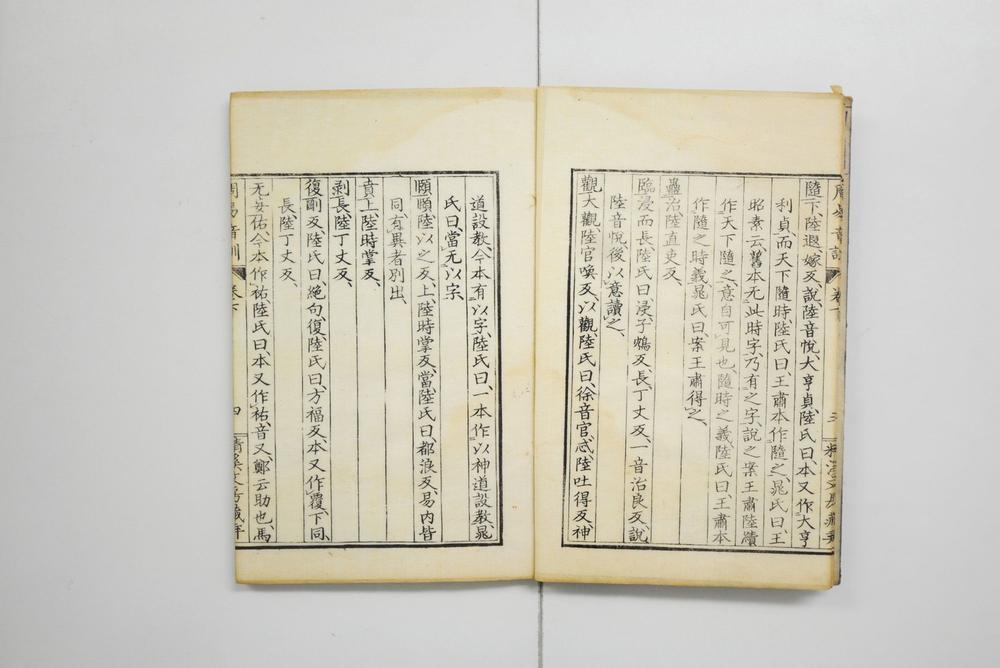 周易音訓 卷下 三
隨下、陸遐嫁反、說陸音悅、大亨貞、陸氏曰、本又作大亨
利貞、而天下隨時、陸氏曰、王肅本作隨之、晁氏曰、王
昭素云、舊本无此時字、乃有之字、說之案王肅陸績
作天下隨之、意自可見也、隨時之義、陸氏曰、王肅本
作隨之時義、晁氏曰、案王肅得之、
蠱治陸直吏反、
臨浸而長、陸氏曰、浸、子鴆反、長、丁丈反、一音治良反、說
陸音悅、後以意讀之、
觀大觀、陸官喚反、以觀陸氏曰、徐音官、忒、陸吐得反、神
道設教、今本有以字、陸氏曰、一本作以神道設教、晁
氏曰、當无以字、
頤頤、陸以之反、上陸時掌反、當陸氏曰、都浪反、易內皆
同、有異者別出、
賁上陸時掌反、
剝長陸丁丈反、
復剛反、陸氏曰、絕句、復、陸氏曰、方福反、本又作覆、下同、
長、陸丁丈反、
无妄佑、今本作祐、陸氏曰、本又作祐、音又、鄭云助也、馬
周易音訓 卷下 四